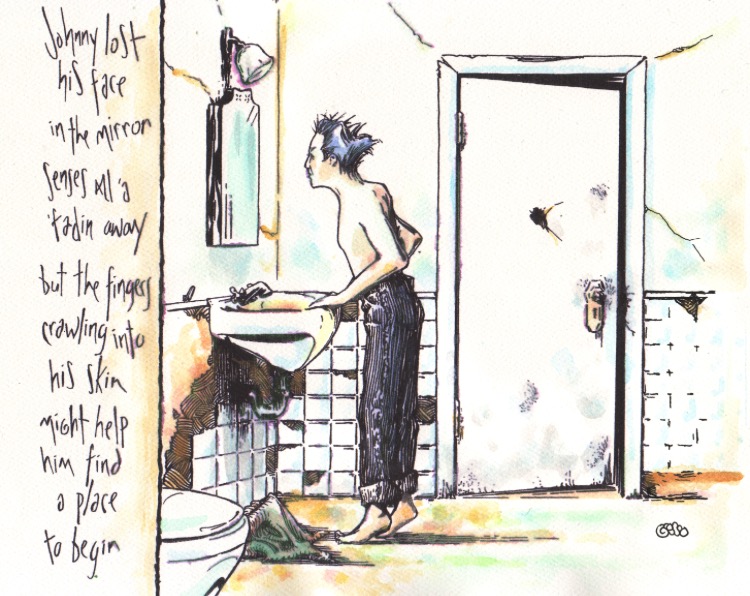 Johnny lost
his face
in the mirror
senses all 'a
'fadin away
but the fingers
crawling into
his skin
might help
him find
a place
to begin